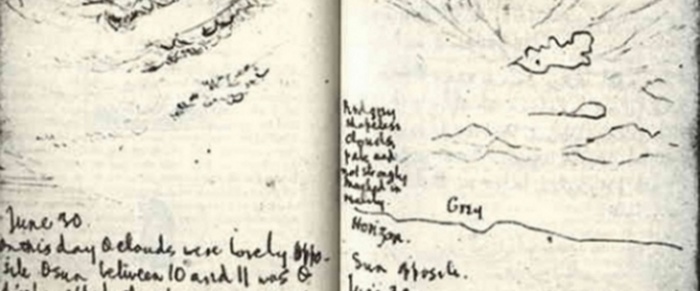 June 30.
On this day θ clouds were lovely. Oppo-
site θ sun between 10 and 11 was θ
And grey
shapeless
clouds,
pale and
not strongly
marked in
reality.
Grey
Horizon.
Sun opposite.